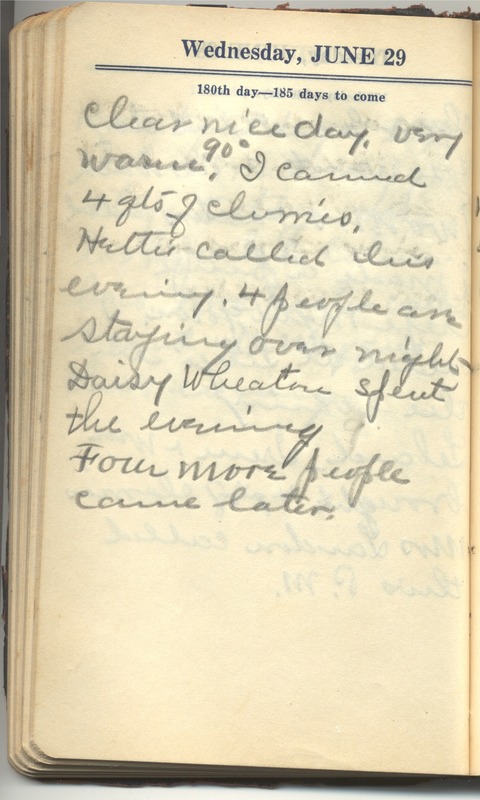 Wednesday, JUNE 29
180th day—185 days to come
Clear nice day, very
warm, 90° I canned
4 qts of
Hettie called this
evening. 4 people are
staying over night
Daisy Wheaton spent
the evening
Four more people
came later.